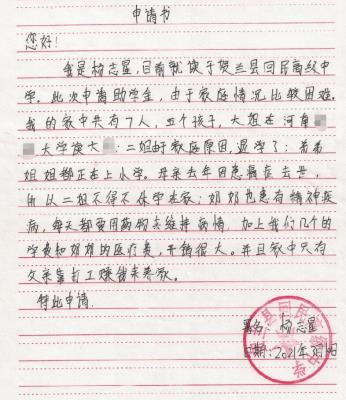 申请书
您好！
我是杨志星，目前就读于贺兰县回民高级中
学。此次申请助学金，由于家庭情况比较困难。
我的家中共有7人，五个孩子，大姐在河南
大学读大；二姐由于家庭原因退学了；弟弟
姐姐都正在上小学。母亲去年因患癌症去世，
所以二姐不得不休学在家；奶奶也患有精神疾
病，每天都要用药物去维持病情。加上我们几个的
学费和奶奶的医疗费，开销很大。并且家中只有
父亲靠打工赚钱来养家。
特此申请
署名：杨志星
日期：2021年